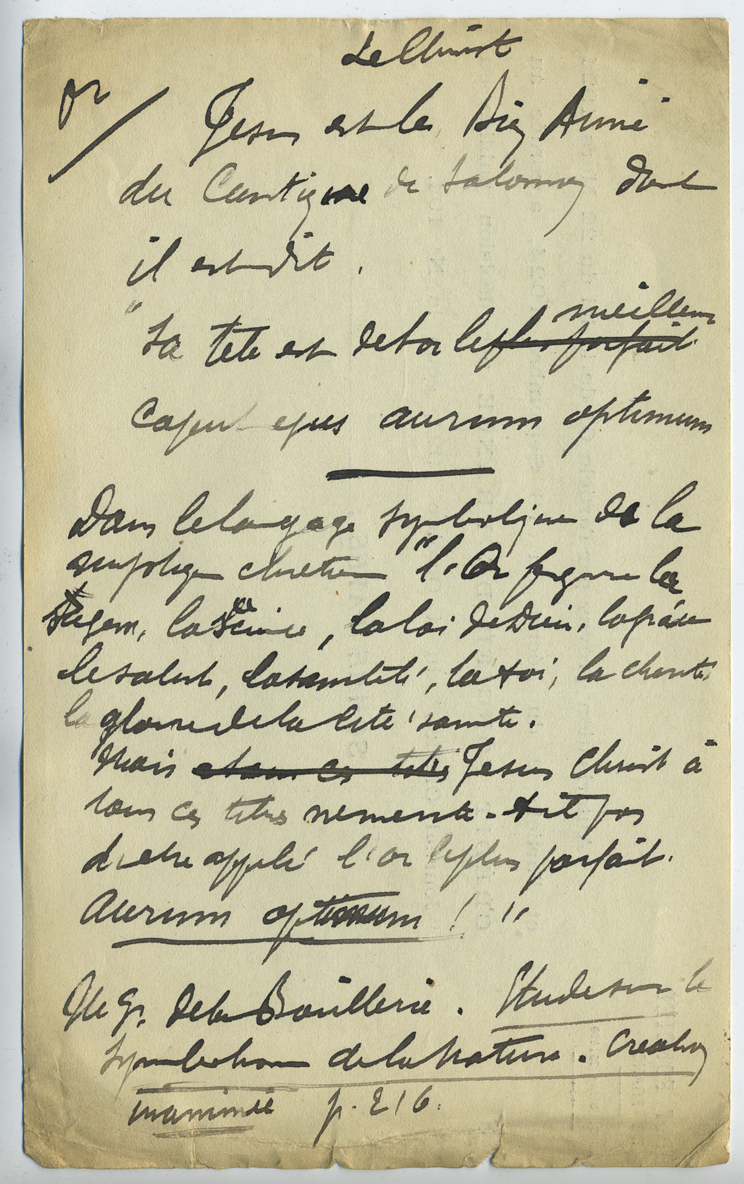 Le Christ
Or /
Jesus est le Bien Aimé
du Cantique de Salomon dont
il est dit .
meilleur
"Sa tête est de l'or le plus parfait
Caput ejus aurum optimum
Dans le langage symbolique de la
chrétien "l'Or figure la
Sagesse, la Science, la loi de Dieu, la grâce
le salut, la sainteté, la foi, la charité
la gloire de la Cité sainte.
Mais a tous ces titres Jesus Christ à
tous ces titres ne merite-t-il pas
d'etre appelé l'or le plus parfait.
Aurum optimum ! "
Mgr. de la Bouillerie . Etude sur le
Symbolisme de la Nature . Creation
inanimée p. 216.